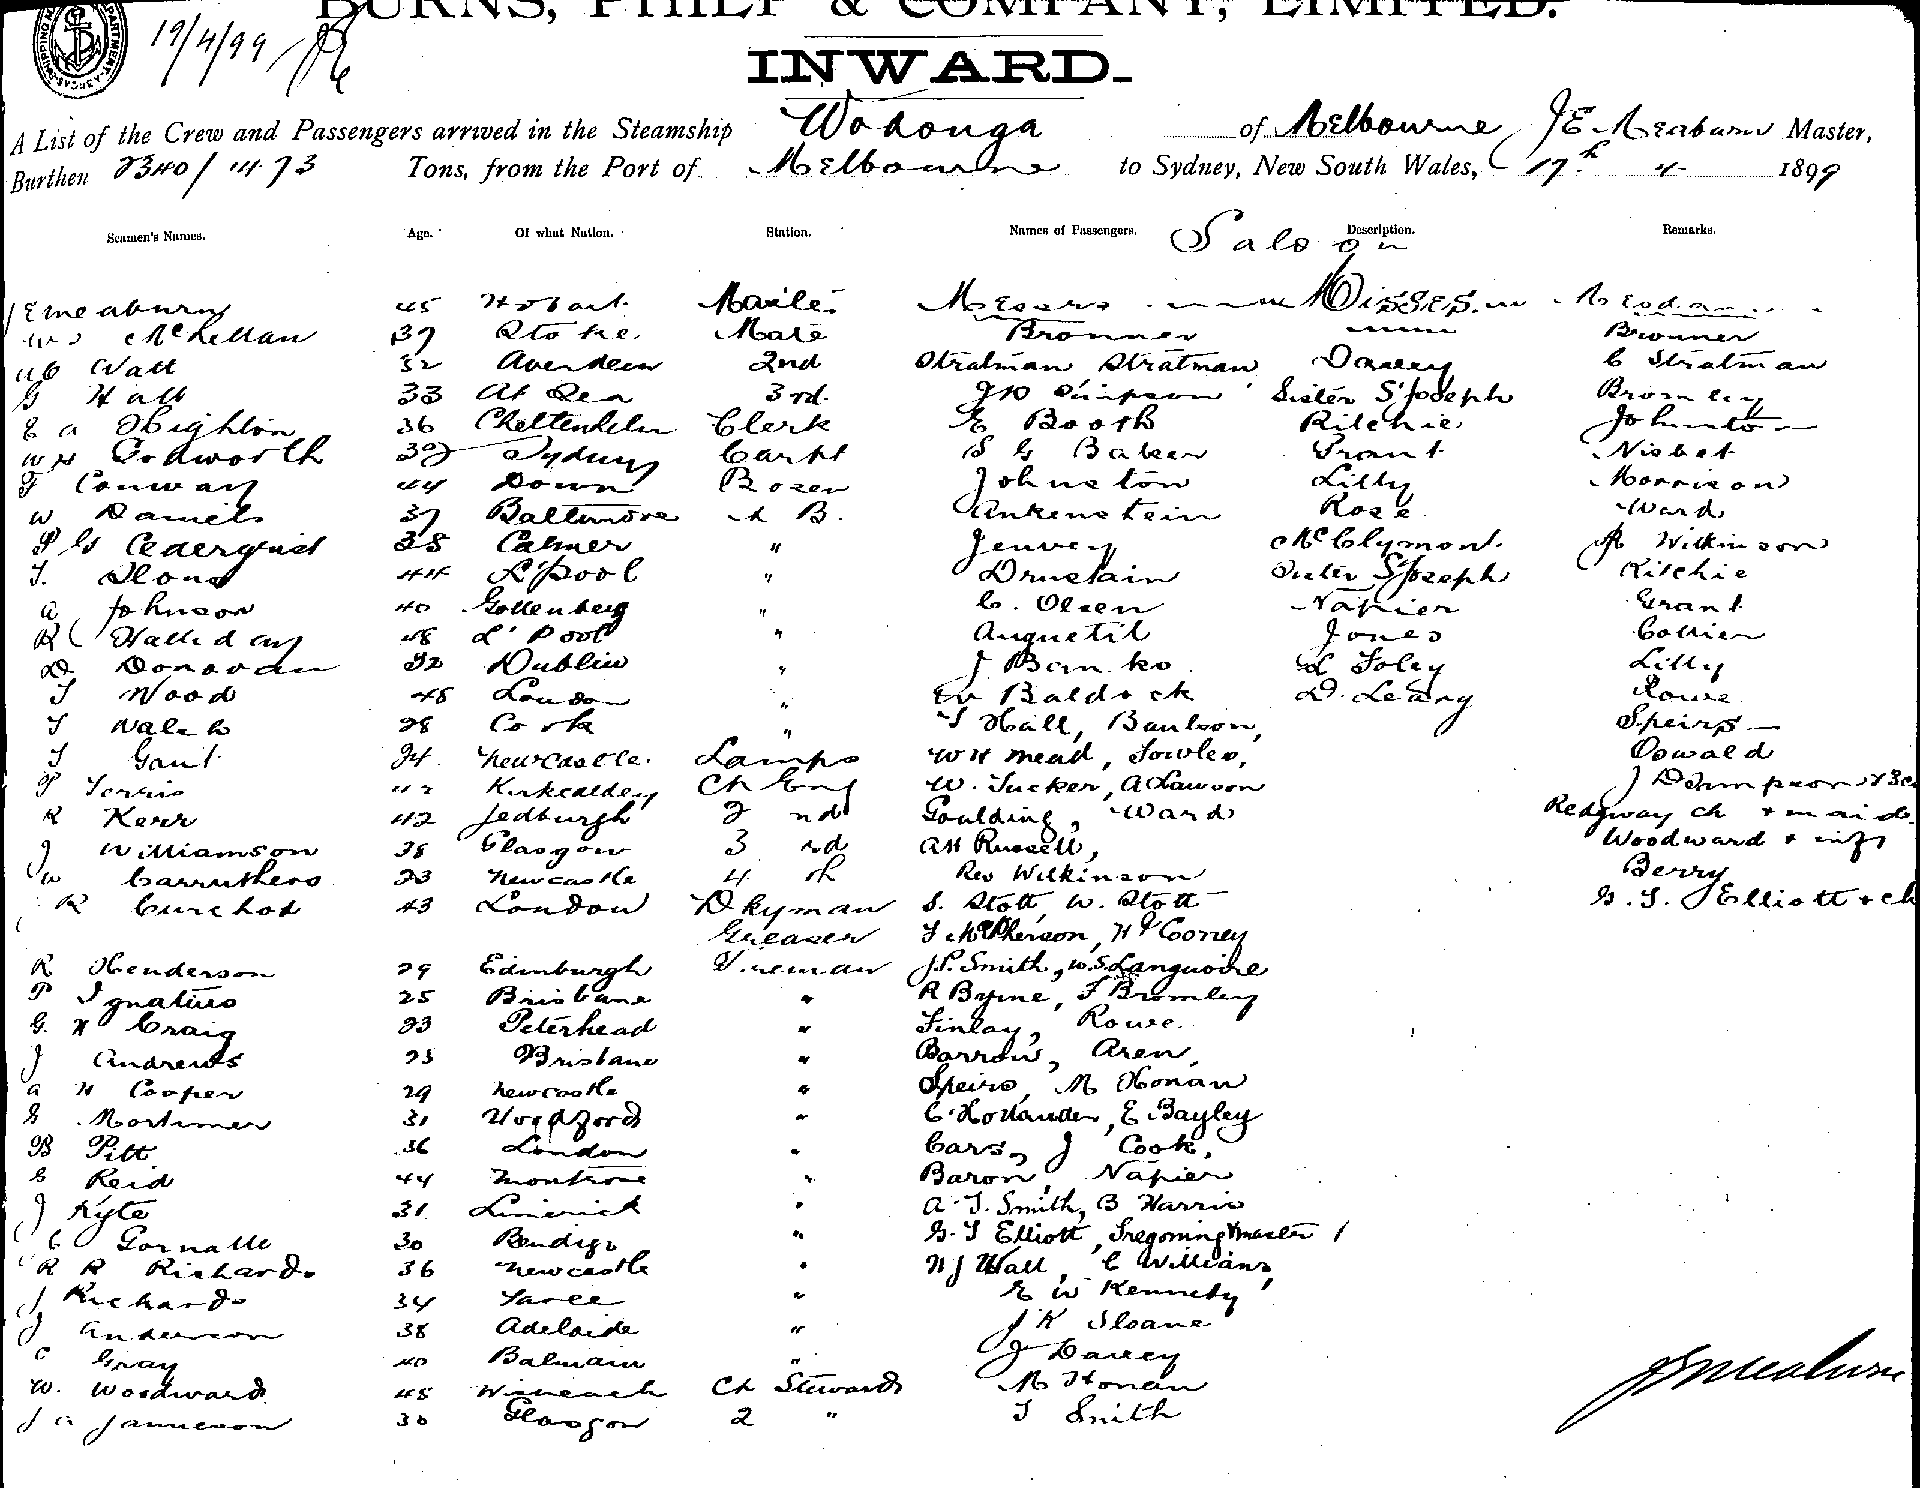 BURNS, PHILP & COMPANY, LIMITED.
19/4/99
INWARD.
A List of the Crew and Passengers arrived in the Steamship Wodonga of Melbourne J E Meaburn Master,
Burthen 2340/1473 Tons, from the Port of Melbourne to Sydney, New South Wales, 17th 4 1899
Seamen's Names. Age. Of what Nation. Station. Names of Passengers. Saloon Description. Remarks.
J E Meaburn 45 Hobart Messrs Misses Mesdam
McLellan 37 Stoke Mate Bronner Bronner
Watt 32 Aberdeen 2nd Stratman Stratman Davey C Stratman
G Hall 33 At Sea 3rd Simpson Sister St Joseph Bromley
E A Heighton 36 Cheltenhelm Clerk E Booth Ritchie Johnston
W H Codworth 39 Sydney Carpt S G Baker Grant Nisbet
F Conway 44 Down Bosen Johnston Lilly Morrison
W Daniels 37 Baltimore A B. Ankenstein Rose Ward
P G Cederquist 38 Calmer " Jenvey McClymont A Wilkinson
T. Sloan 44 L'Pool " Drustain Sister St Joseph Ritchie
A Johnson 40 Gottenberg " C. Olsen Napier Grant
R Halliday 48 L'Pool " Anquetil Jones Collier
D. Donovan 32 Dublin " J Banks L Foley Lilly
T Wood 48 London " Baldock D. Leary Rowe
T Walsh 28 Cork " T Hall, Baulson, Speirs
T Gant 24 Newcastle Lamps W H Mead, Fowles, Oswald
P Ferris 42 Kirkcaldy Ch Eng W. Tucker, A Lawson J Dempson
R Kerr 42 Jedburgh 2nd Goulding, Ward Redgway ch + maid
J Williamson 38 Glasgow 3rd A H Russell, Woodward + inft
W Carruthers 23 Newcastle 4th Rev Wilkinson Berry
R Curchod 43 London Dkyman S. Stott, W. Stott G. T. Elliott + ch
Greaser T McPherson, H J Cooney
R Henderson 29 Edinburgh Fireman J. P. Smith, W. S. Languoine
P Ignatius 25 Brisbane " R Byrne, F Bromley
G. H Craig 23 Peterhead " Finlay, Rowe
J Andrews 25 Brisbane " Barrow, Aren,
A H Cooper 29 Newcastle " Speirs, M Honan
G Mortimer 31 Woodford " C Hollander, E Bayley
B Pitt 36 London " Cars, J Cook,
G Reid 44 Montrose " Baron, Napier
J Kyte 31 Limerick " A. T. Smith, B Harris
C Gornall 30 Bendigo " G. T Elliott, Tregoning + master 1
R R Richards 36 Newcastle " H J Wall, C Williams,
J Richards 34 Taree " E W Kennedy
J Anderson 38 Adelaide " J K Sloane
C Gray 40 Balmain " J Davey
W. Woodward 48 Ch Steward M Honan
J A Jamieson 30 Glasgow 2 " T Smith
J E Meaburn